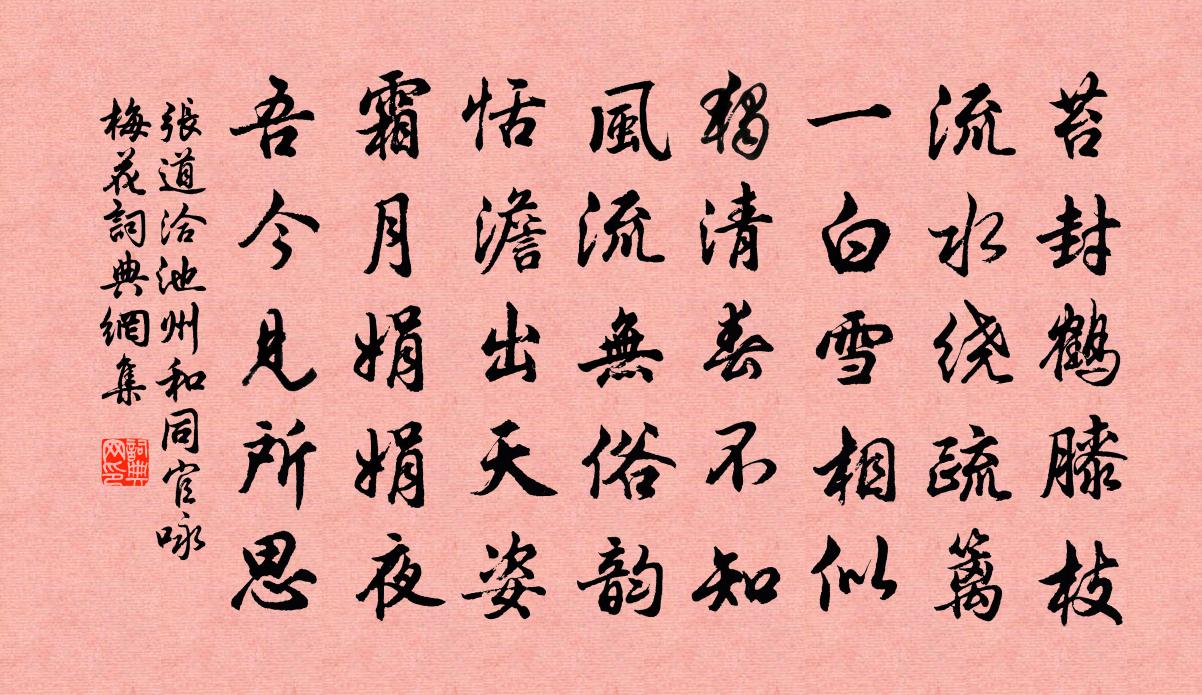 苔封鹤膝枝
流水绕疏篱
一白雪相似
独清春不知
風流無俗韵
恬澹出天姿
霜月娟娟夜
吾今见所思
張道洽池州和同官咏
梅花詞典網集
詞典
网印